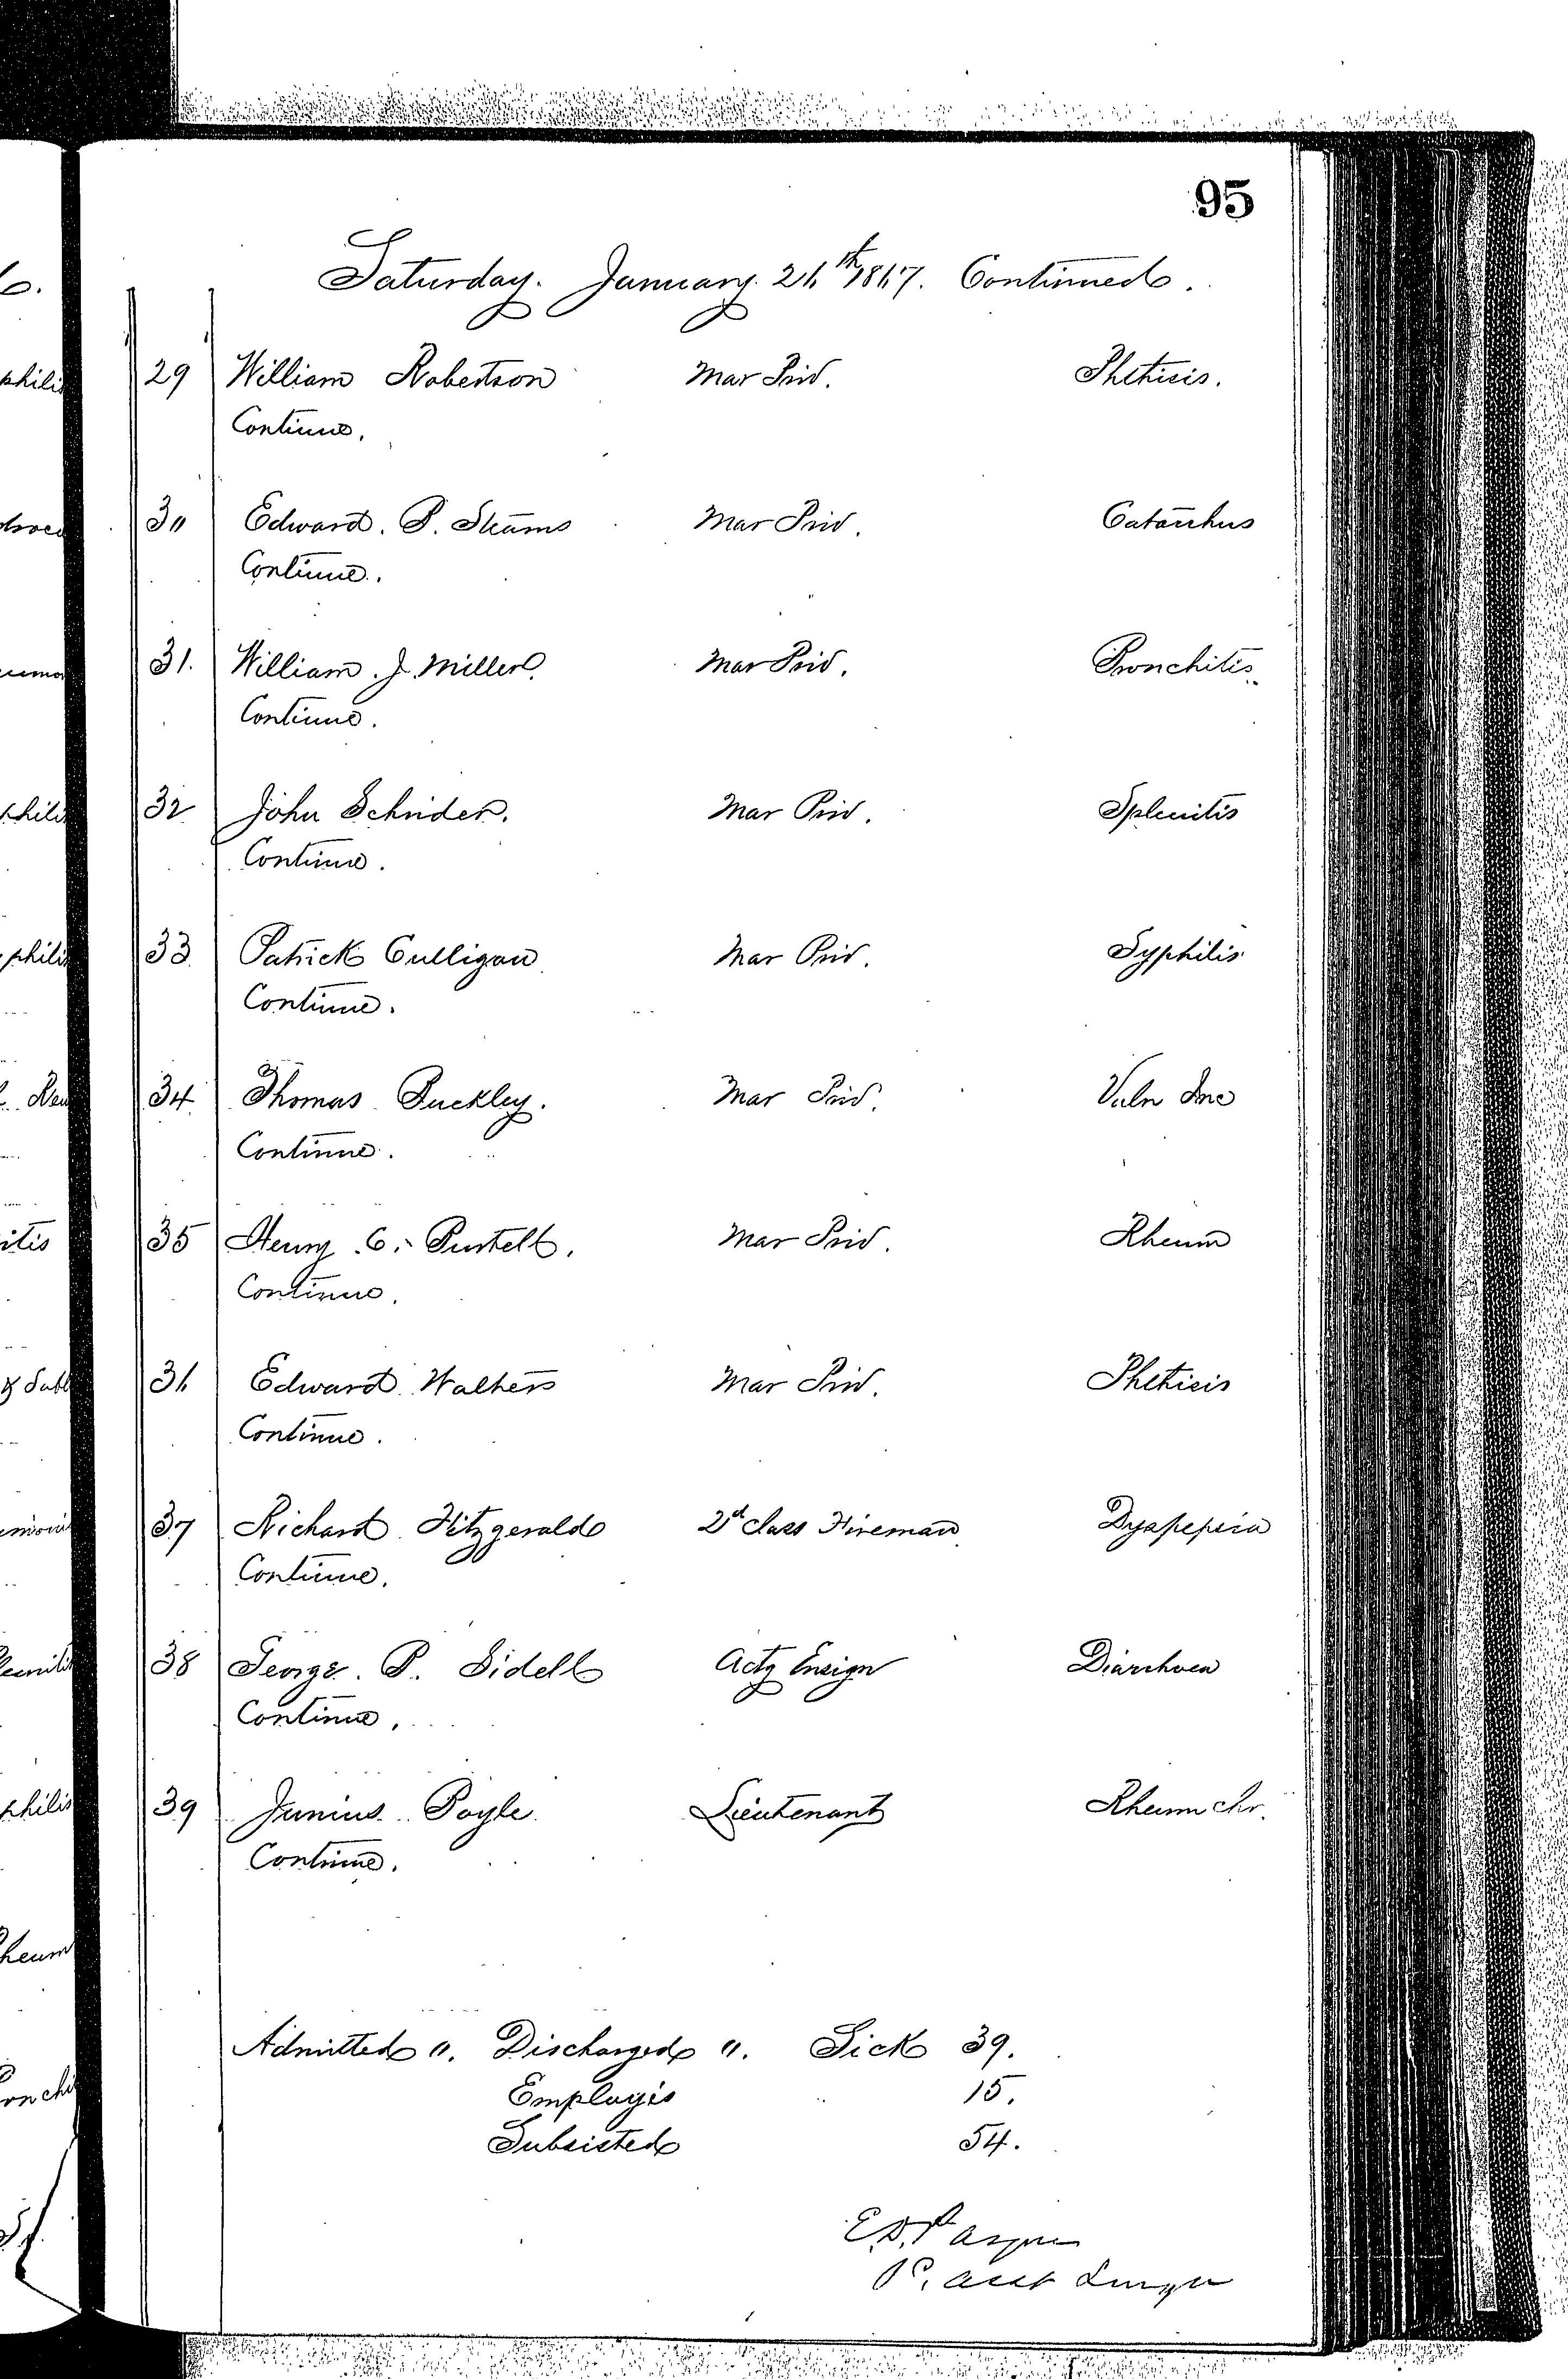 95
Saturday. January. 26th 1867. Continued.
29 William Robertson Mar Priv. Phthisis.
Continue.
30 Edward. P. Stearns Mar Priv. Catarrhus
Continue.
31. William. J. Miller. Mar Priv. Bronchitis.
Continue.
32 John Schrider. Mar Priv. Splenitis
Continue.
33 Patrick Culligan Mar Priv. Syphilis
Continue.
34 Thomas Buckley. Mar Priv. Vuln Inc
Continue.
35 Henry C. Purtell. Mar Priv. Rheum
Continue.
36 Edward Walters Mar Priv. Phthisis
Continue.
37 Richard Fitzgerald 2d class Fireman Dyspepsia
Continue.
38 George. P. Sidell Actg Ensign Diarrhoea
Continue.
39 Junius Boyle Lieutenant Rheum chr.
Continue.
Admitted 0. Discharged 0. Sick 39.
Employés 15.
Subsisted 54.
E.D. Payne
P. Asst Surgn